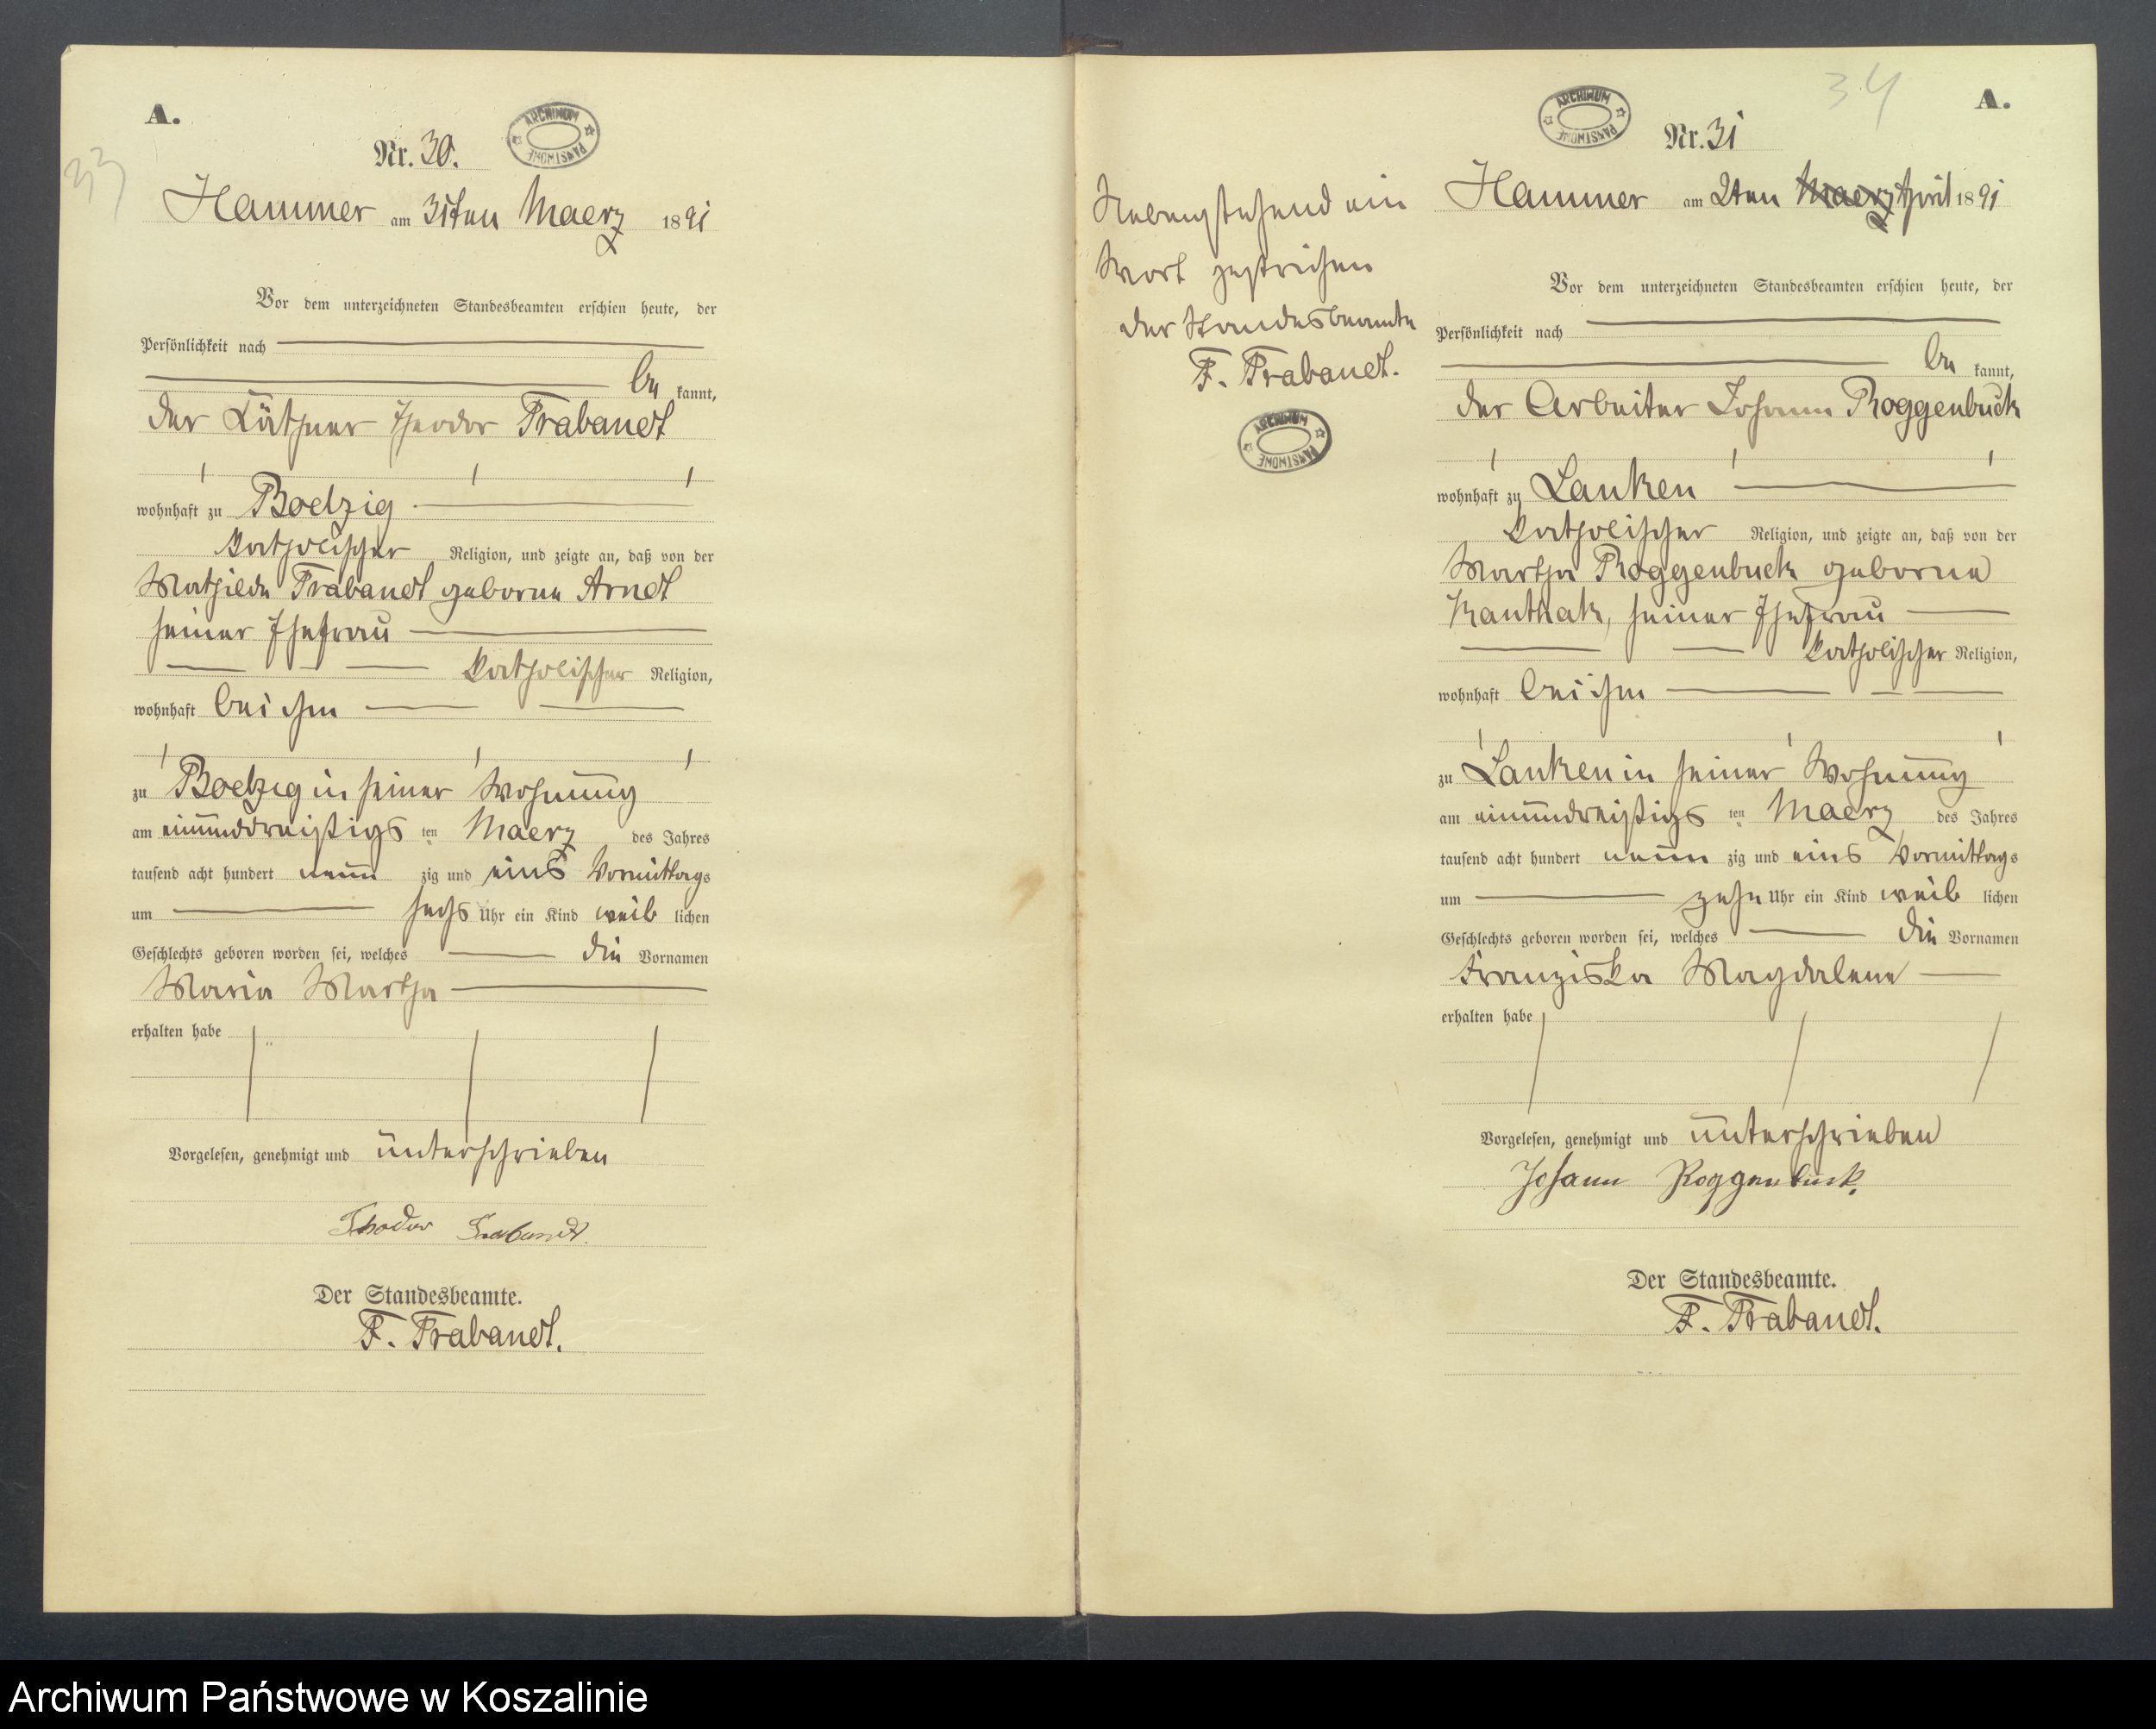 33
A.
Nr. 30.
ARCHIWUM PAŃSTWOWE
Hammer am 31ten Maerz 1891
Vor dem unterzeichneten Standesbeamten erschien heute, der
Persönlichkeit nach
be kannt,
der Käthner Theodor Trabandt
wohnhaft zu Boelzig
katholischer Religion, und zeigte an, daß von der
Mathilde Trabandt geborne Arndt
seiner Ehefrau
katholischer Religion,
wohnhaft bei ihm
zu Boelzig in seiner Wohnung
am einunddreißigsten Maerz des Jahres
tausend acht hundert neun zig und eins Vormittags
um sechs Uhr ein Kind weib lichen
Geschlechts geboren worden sei, welches die Vornamen
Maria Martha
erhalten habe
Vorgelesen, genehmigt und unterschrieben
Theodor Trabandt.
Der Standesbeamte.
F. Trabandt.
34
A.
ARCHIWUM PAŃSTWOWE
Nr. 31
Hammer am 2ten Maerz April 1891
Nebenstehend ein
Wort gestrichen
der Standesbeamte
F. Trabandt.
ARCHIWUM PAŃSTWOWE
Vor dem unterzeichneten Standesbeamten erschien heute, der
Persönlichkeit nach
be kannt,
der Arbeiter Johann Roggenbuck
wohnhaft zu Lanken
katholischer Religion, und zeigte an, daß von der
Martha Roggenbuck geborne
Kanthak, seiner Ehefrau
katholischer Religion,
wohnhaft bei ihm
zu Lanken in seiner Wohnung
am einundreißigsten Maerz des Jahres
tausend acht hundert neun zig und eins Vormittags
um zehn Uhr ein Kind weib lichen
Geschlechts geboren worden sei, welches die Vornamen
Franziska Magdalene
erhalten habe
Vorgelesen, genehmigt und unterschrieben
Johann Roggenbuck.
Der Standesbeamte.
F. Trabandt.
Archiwum Państwowe w Koszalinie